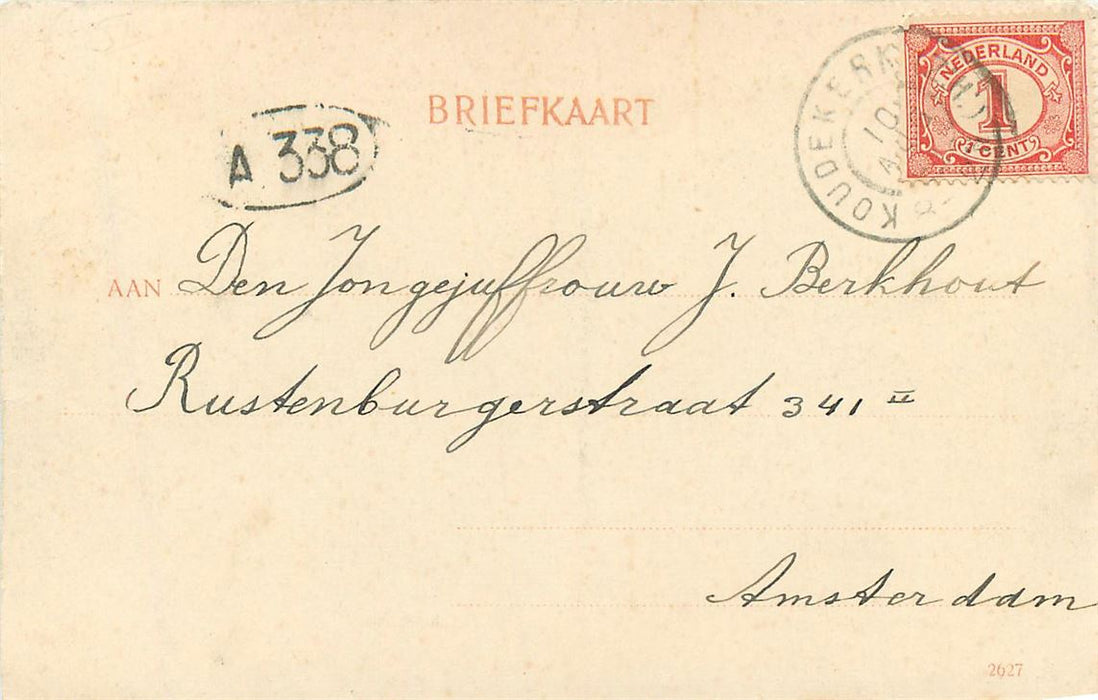 BRIEFKAART
NEDERLAND
1
1 CENT
KOUDEKERK
10
A 338
AAN Den Jongejuffrouw J. Berkhout
Rustenburgerstraat 341 II
Amsterdam
2627